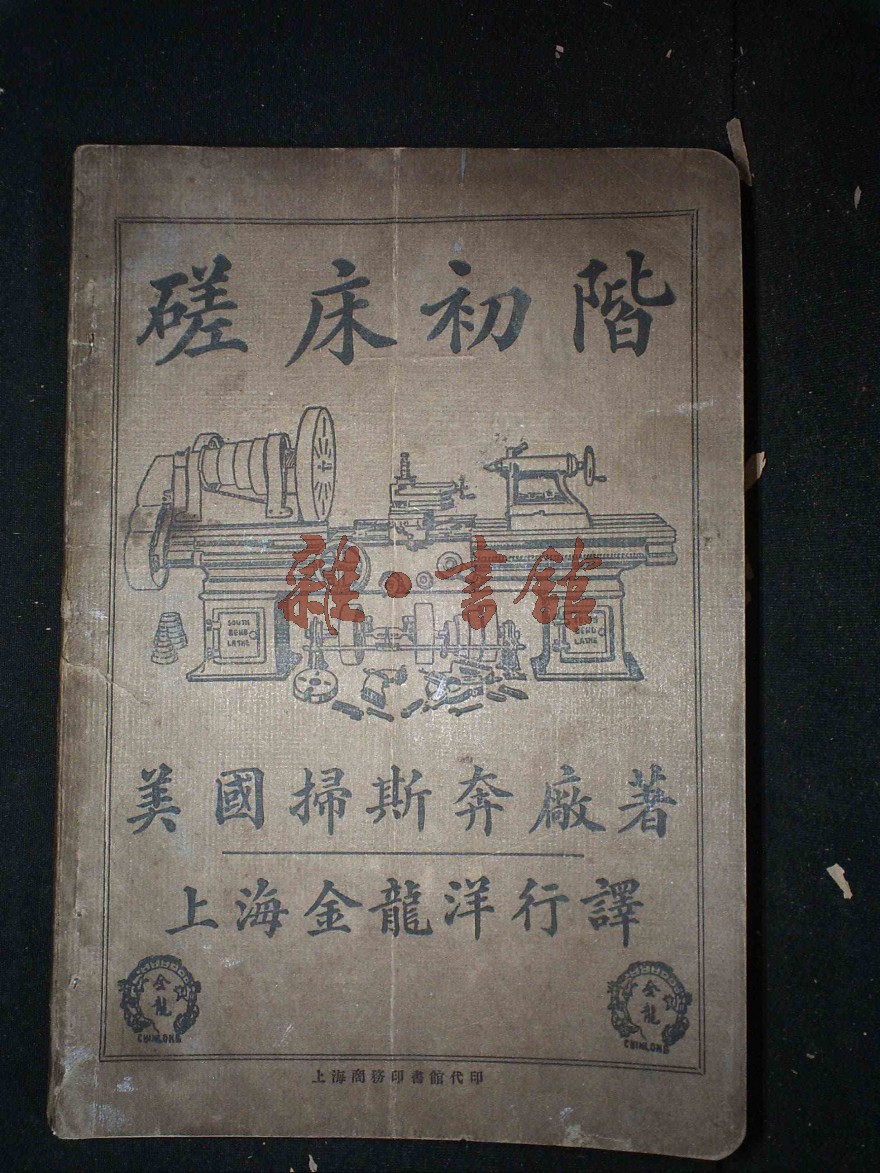 磋床初階
雜·書館
SOUTH
BEND
LATHE
SOUTH
BEND
LATHE
美國掃斯奔廠著
上海金龍洋行譯
金龍
CHINLONG
金龍
CHINLONG
上海商務印書館代印